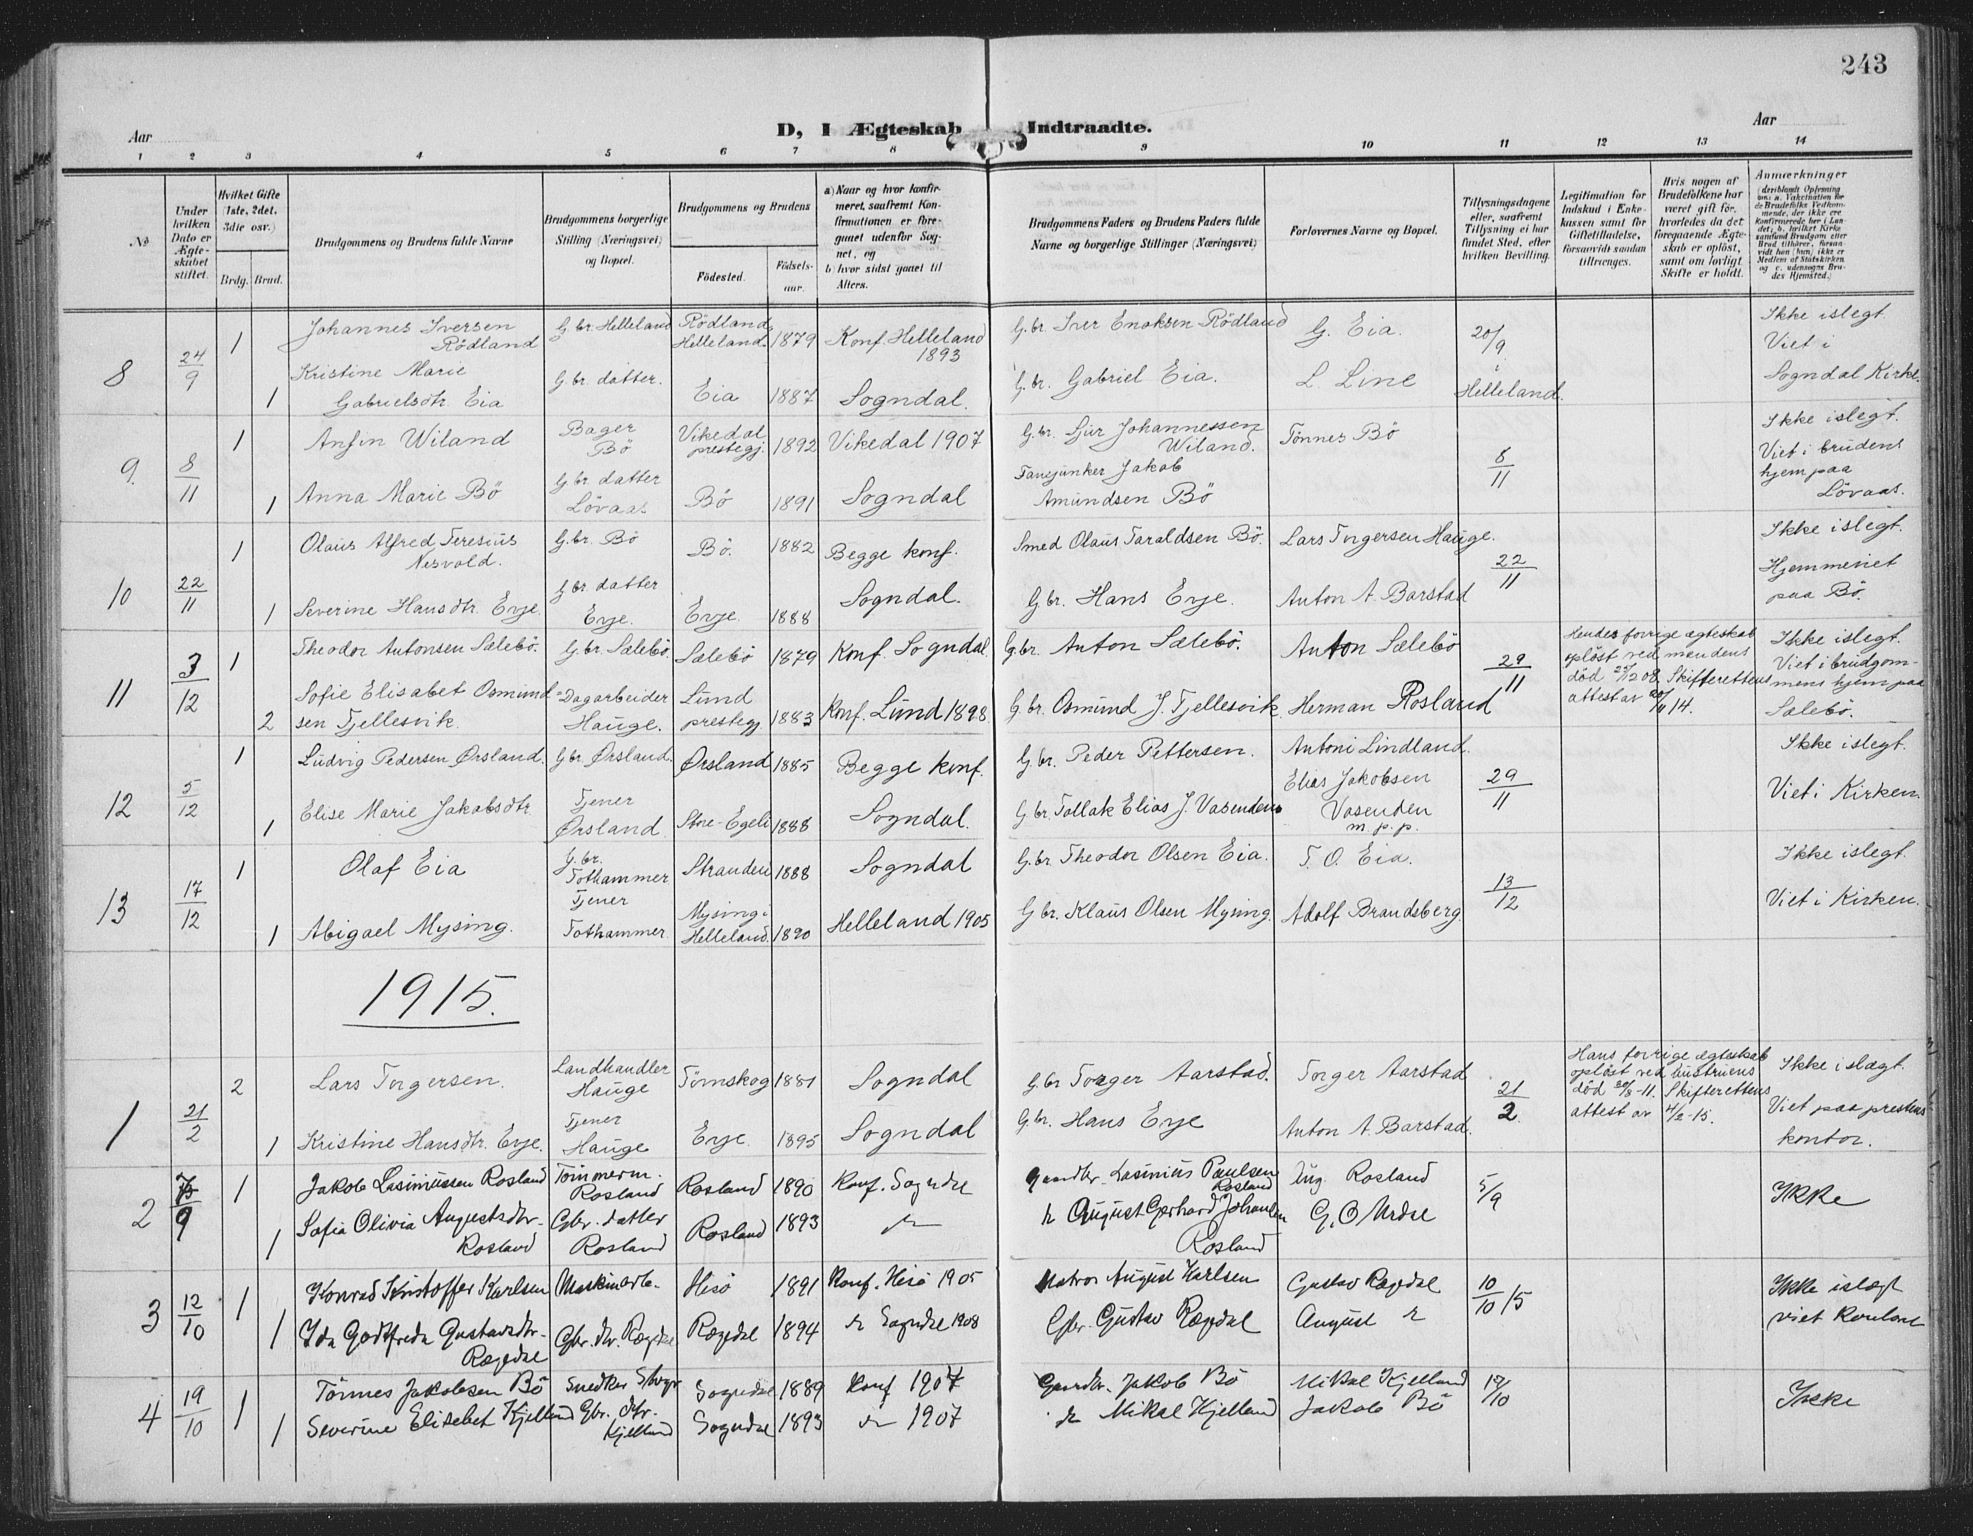 243
Aar
D, I Ægteskab Indtraadte.
Aar
1 2 3 4 5 6 7 8 9 10 11 12 13 14
No
Under hvilken Dato er Ægteskabet stiftet.
Hvilket Gifte (1ste, 2det, 3die osv.)
Brdg. Brud.
Brudgommens og Brudens fulde Navne
Brudgommens borgerlige Stilling (Næringsvei) og Bopæl.
Brudgommens og Brudens
Födested.
Födselsaar.
a) Naar og hvor konfirmeret, saafremt Konfirmationen er foregaaet udenfor Sognet, og
b) hvor sidst gaaet til Alters.
Brudgommens Faders og Brudens Faders fulde Navne og borgerlige Stillinger (Næringsvei)
Forlovernes Navne og Bopæl.
Tillysningsdagene eller, saafremt Tillysning ei har fundet Sted, efter hvilken Bevilling.
Legitimation for Indskud i Enkekassen samt for Giftetilladelse, forsaavidt saadan tiltrænges.
Hvis nogen af Brudefolkene har været gift för, hvorledes da det foregaaende Ægteskab er oplöst, samt om lovligt Skifte er holdt.
Anmærkninger
8 24/9 1 Johannes Iversen Rödland G.br. Helleland Rödland Helleland 1879 Konf. Helleland 1893 G.br. Iver Enoksen Rödland G. Eia. 20/9 i Helleland Ikke i slegt. Viet i Sogndal Kirke
1 Kristine Marie Gabrielsdtr. Eia G.br. datter. Eia 1887 Sogndal. G.br. Gabriel Eia. L. Line
9. 8/11 1 Anfin Wiland Bager Bö Vikedal prestegj. 1892 Vikedal 1907 G.br. Sjur Johannessen Wiland. Tönnes Bö 8/11 Ikke i slegt. Viet i brudens hjem paa Lövaas.
1 Anna Marie Bö G.br datter Lövaas Bö 1891 Sogndal Fanejunker Jakob Amundsen Bö
10 22/11 1 Olaus Alfred Teresius Nesvold. G.br. Bö Bö. 1882 Begge konf. Smed Olaus Taraldsen Bö. Lars Torgersen Hauge. 22/11 Ikke i slegt. Hjemmeviet paa Bö.
1 Severine Hansdtr. Erje. G.br datter Erje. Erje. 1888 Sogndal. G.br. Hans Erje. Anton A. Barstad
11 3/12 1 Theodor Antonsen Sælebö. G.br. Sælebö. Sælebö 1879 Konf. Sogndal G.br. Anton Sælebö. Anton Sælebö 29/11 Hendes forrige ægteskab oplöst ved mandens död 25/12 08. Skifterettens attest av 20/11 14. Ikke i slegt. Viet i brudgommens hjem paa Sælebö.
2 Sofie Elisabet Osmundsen Tjellesvik. Dagarbeider Hauge. Lund prestegj 1883 Konf. Lund 1898 G.br. Osmund J. Tjellesvik. Herman Rosland
12 5/12 1 Ludvig Pedersen Ørsland. G.br. Ørsland. Ørsland 1885 Begge konf. G.br. Peder Pettersen. Antoni Lindland. 29/11 Ikke i slegt. Viet i Kirken.
1 Elise Marie Jakobsdtr. Tjener Ørsland Store-Egeli 1888 Sogndal. G.br Tollak Elias J. Vasenden Elias Jakobsen Vasenden m.p.p.
13 17/12 1 Olaf Eia G.br. Tothammer Stranden 1888 Sogndal G.br. Theodor Olsen Eia. T. O. Eia. 13/12 Ikke i slegt. Viet i Kirken.
1 Abigael Mysing. Tjener Tothammer. Mysing i Helleland. 1890 Helleland 1905 G.br. Klaus Olsen Mysing. Adolf Brandsberg.
1915.
1 21/2 2 Lars Torgersen. Landhandler Hauge Tömskog 1881 Sogndal G.br Torger Aarstad. Torger Aarstad 21/2 Hans forrige ægteskab oplöst ved hustruens död 20/8-11. Skifterettens attest av 4/2-15. Ikke i slægt. Viet paa prestens kontor.
1 Kristine Hansdtr. Erje. Tjener Hauge Erje. 1895 Sogndal G.br. Hans Erje Anton A. Barstad.
2 /9 1 Jakob Rasmussen Rosland Tömmerm. Rosland Rosland 1890 Konf. Sogndal Gaardbr. Rasmus Paulsen Rosland Aug. Rosland 5/9 Ikke
1 Sofia Olivia Augustsdtr. Rosland Gbr. datter Rosland Rosland 1893 August Gerhard Johansen Rosland G. O
3 12/10 1 Konrad Kristoffer Karlsen Maskinarb. Hisö 1891 Konf. Hisö 1905 Matros August Karlsen Gustav Rægdal 10/10 15 Ikke i slægt viet
1 Ida Godtfreda Gustavsdtr. Rægdal Gbr. dtr. Rægdal Rægdal 1894 Sogndal 1908 Gbr. Gustav Rægdal August
4 19/10 1 Tönnes Jakobsen Bö Snedker Sogndal 1889 Konf 1907 Gaardbr. Jakob Bö Mikal Kjelland /10 Ikke
1 Severine Elisebet Kjelland Gbr. dtr. Kjelland Sogndal 1893 1907 Mikal Kjelland Jakob Bö